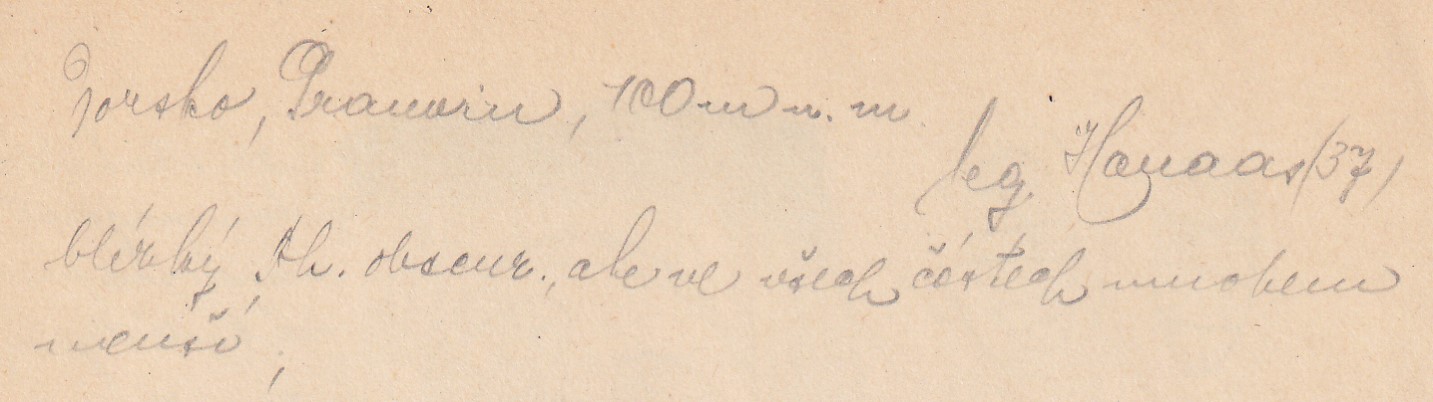 Norsko, Pramvin, 100 m n. m.
leg. Hanaas (37)
blízký Rh. obscur., ale ve všech částech mnohem
menší,